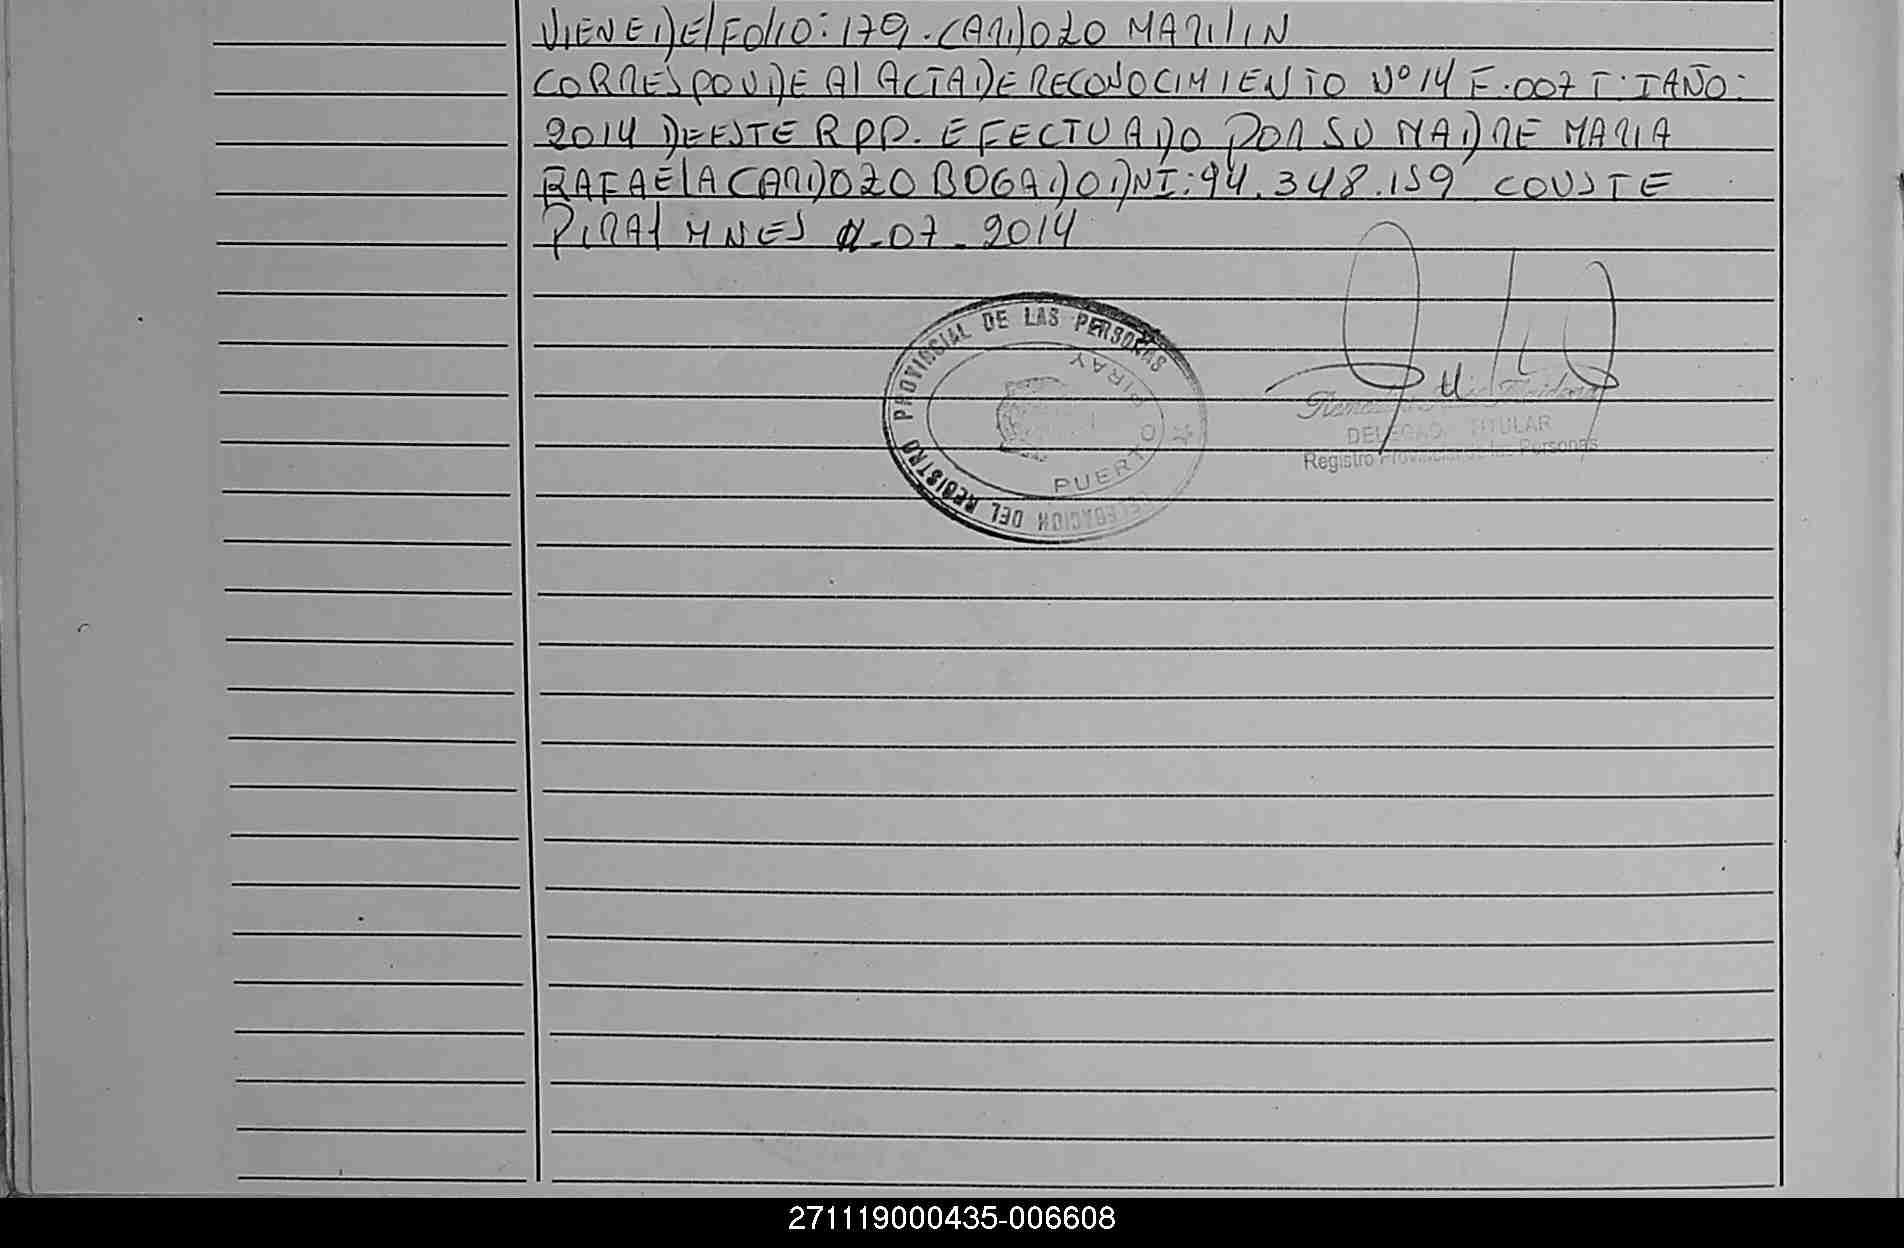 VIENE DEL FOLIO: 179. CARDOZO MARILIN
CORRESPONDE AL ACTA DE RECONOCIMIENTO Nº 14 F. 007 T. I AÑO:
2014 DE ESTE RPP. EFECTUADO POR SU MADRE MARIA
RAFAELA CARDOZO BOGADO DNI: 94.348.159 CONSTE
PIRAY MNES -07-2014
DELEGACION DEL REGISTRO PROVINCIAL DE LAS PERSONAS
PUERTO PIRAY
TITULAR
Registro Provincial de las Personas
271119000435-006608